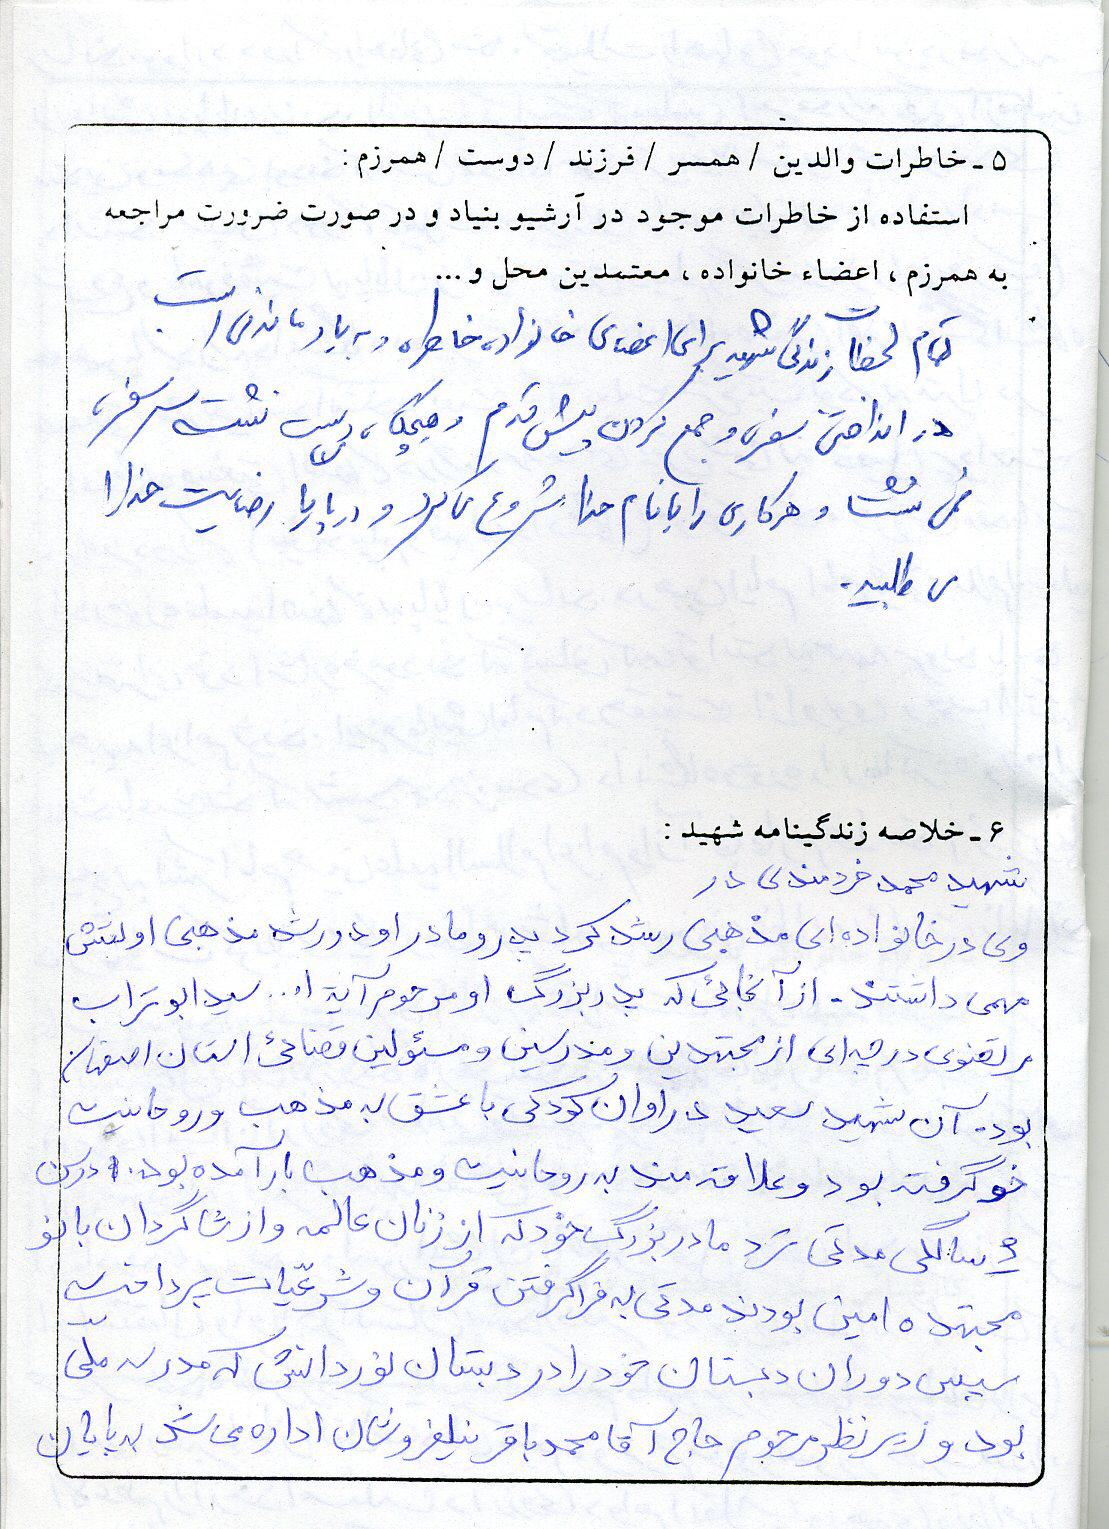 ۵ ـ خاطرات والدین / همسر / فرزند / دوست / همرزم :
استفاده از خاطرات موجود در آرشیو بنیاد و در صورت ضرورت مراجعه
به همرزم ، اعضاء خانواده ، معتمدین محل و ...
تمام لحظات زندگی شهید برای اعضای خانواده خاطره و به یاد ماندنی است
در انداختن سفره و جمع کردن پیش قدم و هیچگاه نشست سر سفره
و هر کاری را با نام خدا شروع می کرد و در پایان رضایت خدا را
می طلبید .
۶ ـ خلاصه زندگینامه شهید :
شهید محمد خردمندی در
وی در خانواده ای مذهبی رشد کرد پدر و مادر او در رشد مذهبی او نقش
مهمی داشتند . از آنجائی که پدربزرگ او مرحوم آیة ا... سید ابوتراب
مرتضوی درچه ای از مجتهدین و مدرسین و مسئولین قضائی استان اصفهان
بود . آن شهید سعید در اوان کودکی با عشق به مذهب و روحانیت
خو گرفته بود و علاقه مند به روحانیت و مذهب بار آمده بود . در سن
سالگی مدتی نزد مادربزرگ خود که از زنان عالمه و از شاگردان بانو
مجتهده امین بودند مدتی به فراگرفتن قرآن و شرعیات پرداخت
سپس دوران دبستان خود را در دبستان نوردانش که مدرسه ملی
بود و زیر نظر مرحوم حاج آقا محمد باقر نیلفروشان اداره می شد به پایان